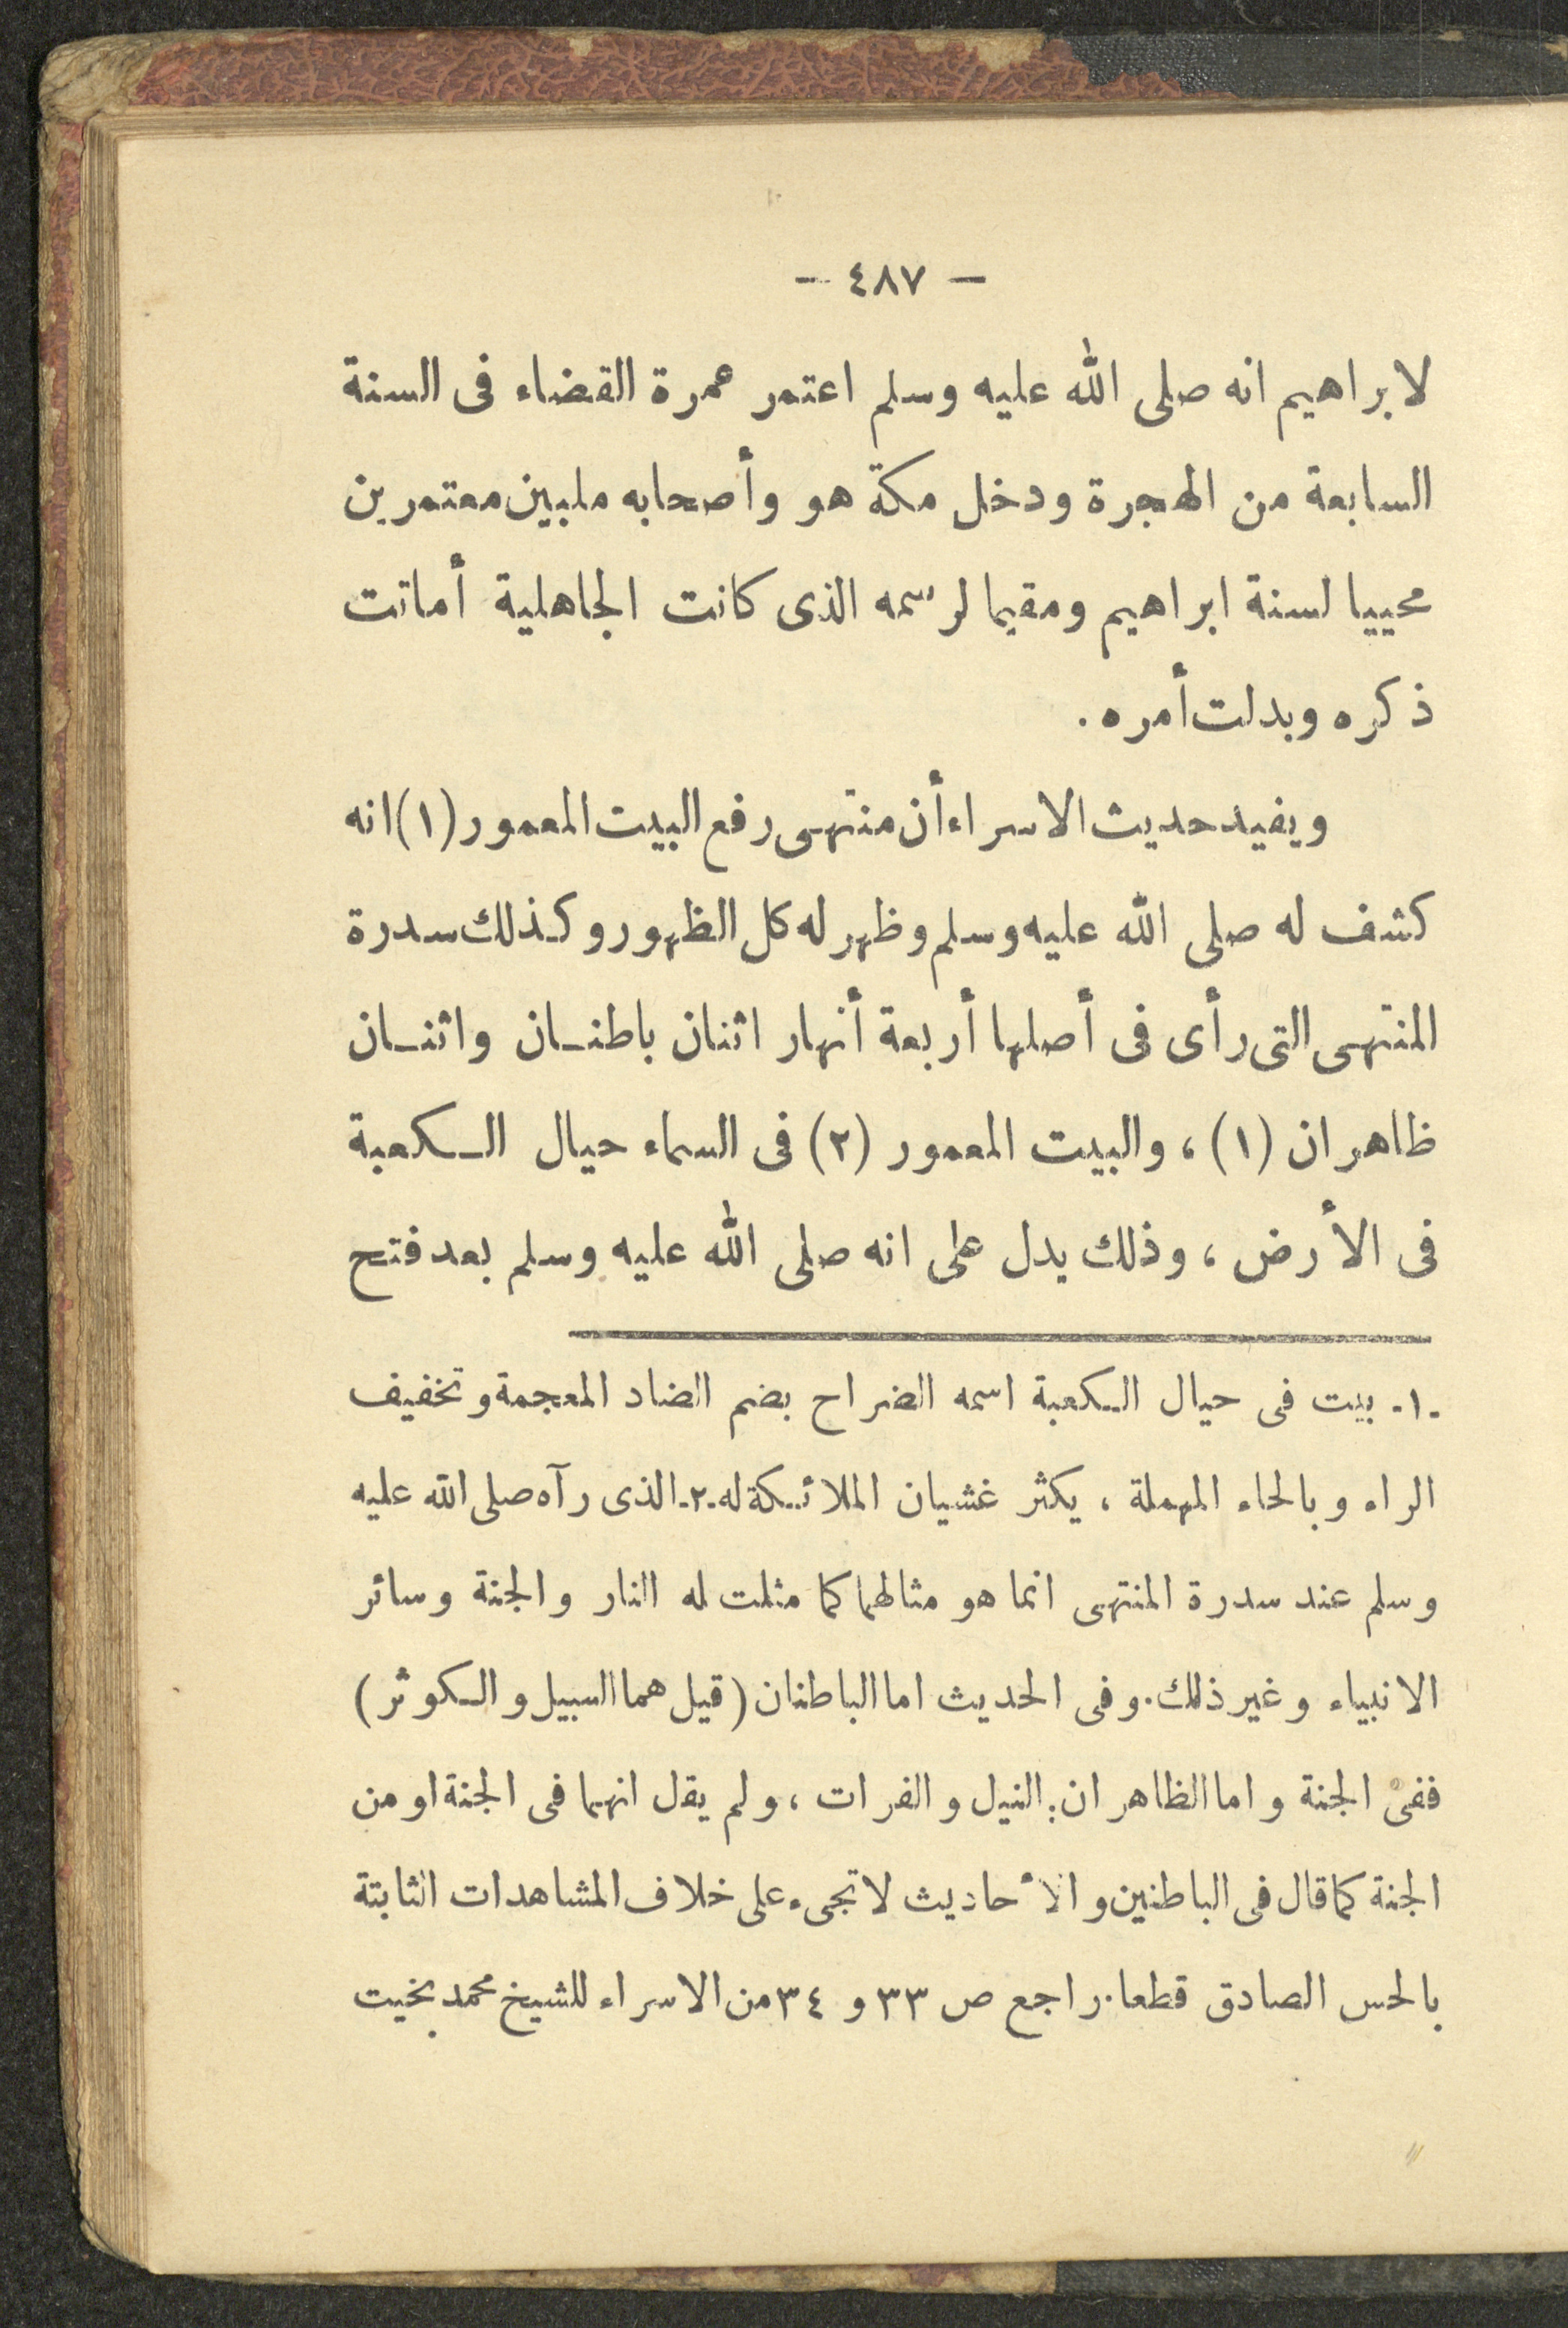 — ٤٨٧ —
لابراهيم انه صلى الله عليه وسلم اعتمر عمرة القضاء فى السنة
السابعة من الهجرة ودخل مكة هو وأصحابه ملبين معتمرين
محييا لسنة ابراهيم ومقيما لرسمه الذى كانت الجاهلية أماتت
ذكره وبدلت أمره .
ويفيد حديث الاسراء أن منتهى رفع البيت المعمور (١) انه
كشف له صلى الله عليه وسلم وظهر له كل الظهور وكذلك سدرة
المنتهى التى رأى فى أصلها أربعة أنهار اثنان باطنـان واثنـان
ظاهران (١) ، والبيت المعمور (٢) فى السماء حيال الـكعبة
فى الأرض ، وذلك يدل على انه صلى الله عليه وسلم بعد فتح
-١- بيت فى حيال الـكعبة اسمه الضراح بضم الضاد المعجمة وتخفيف
الراء وبالحاء المهملة ، يكثر غشيان الملائـكة له -٢- الذى رآه صلى الله عليه
وسلم عند سدرة المنتهى انما هو مثالهما كما مثلت له النار والجنة وسائر
الانبياء وغير ذلك . وفى الحديث اما الباطنان ( قيل هما السبيل والـكوثر )
ففى الجنة واما الظاهران : النيل والفرات ، ولم يقل انهما فى الجنة او من
الجنة كما قال فى الباطنين والأحاديث لا تجىء على خلاف المشاهدات الثابتة
بالحس الصادق قطعا . راجع ص ٣٣ و ٣٤ من الاسراء للشيخ محمد بخيت